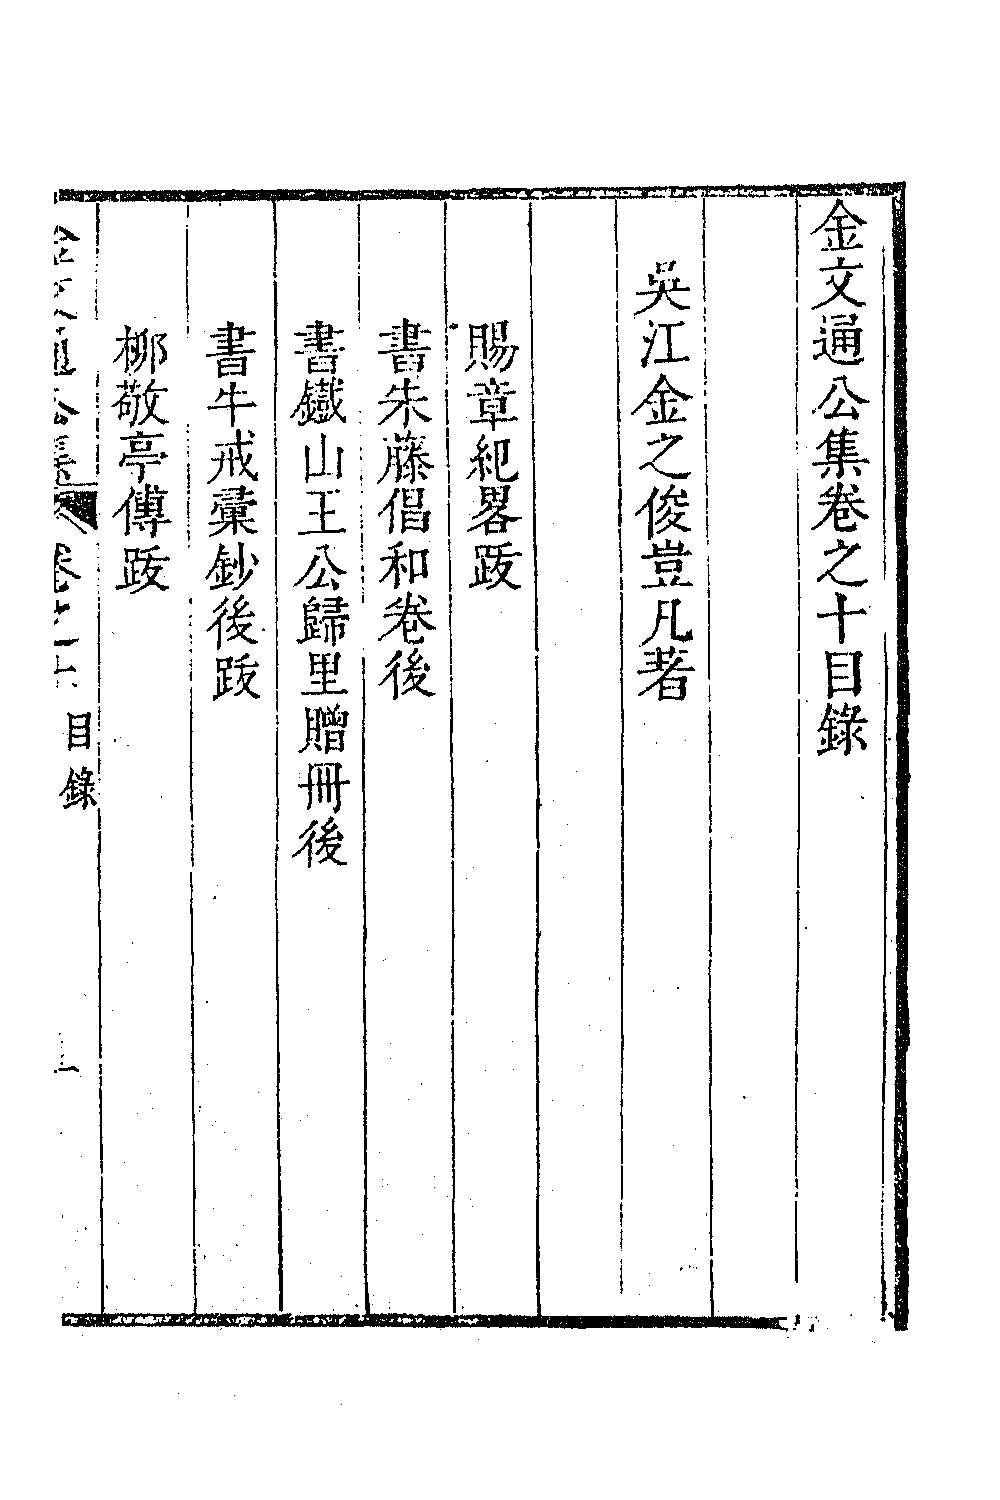 金文通公集卷之十目錄
吳江金之俊豈凡著
賜章紀畧跋
書朱藤倡和卷後
書鐵山王公歸里贈冊後
書牛戒彙鈔後跋
柳敬亭傳跋
金文通公集 卷之十 目錄